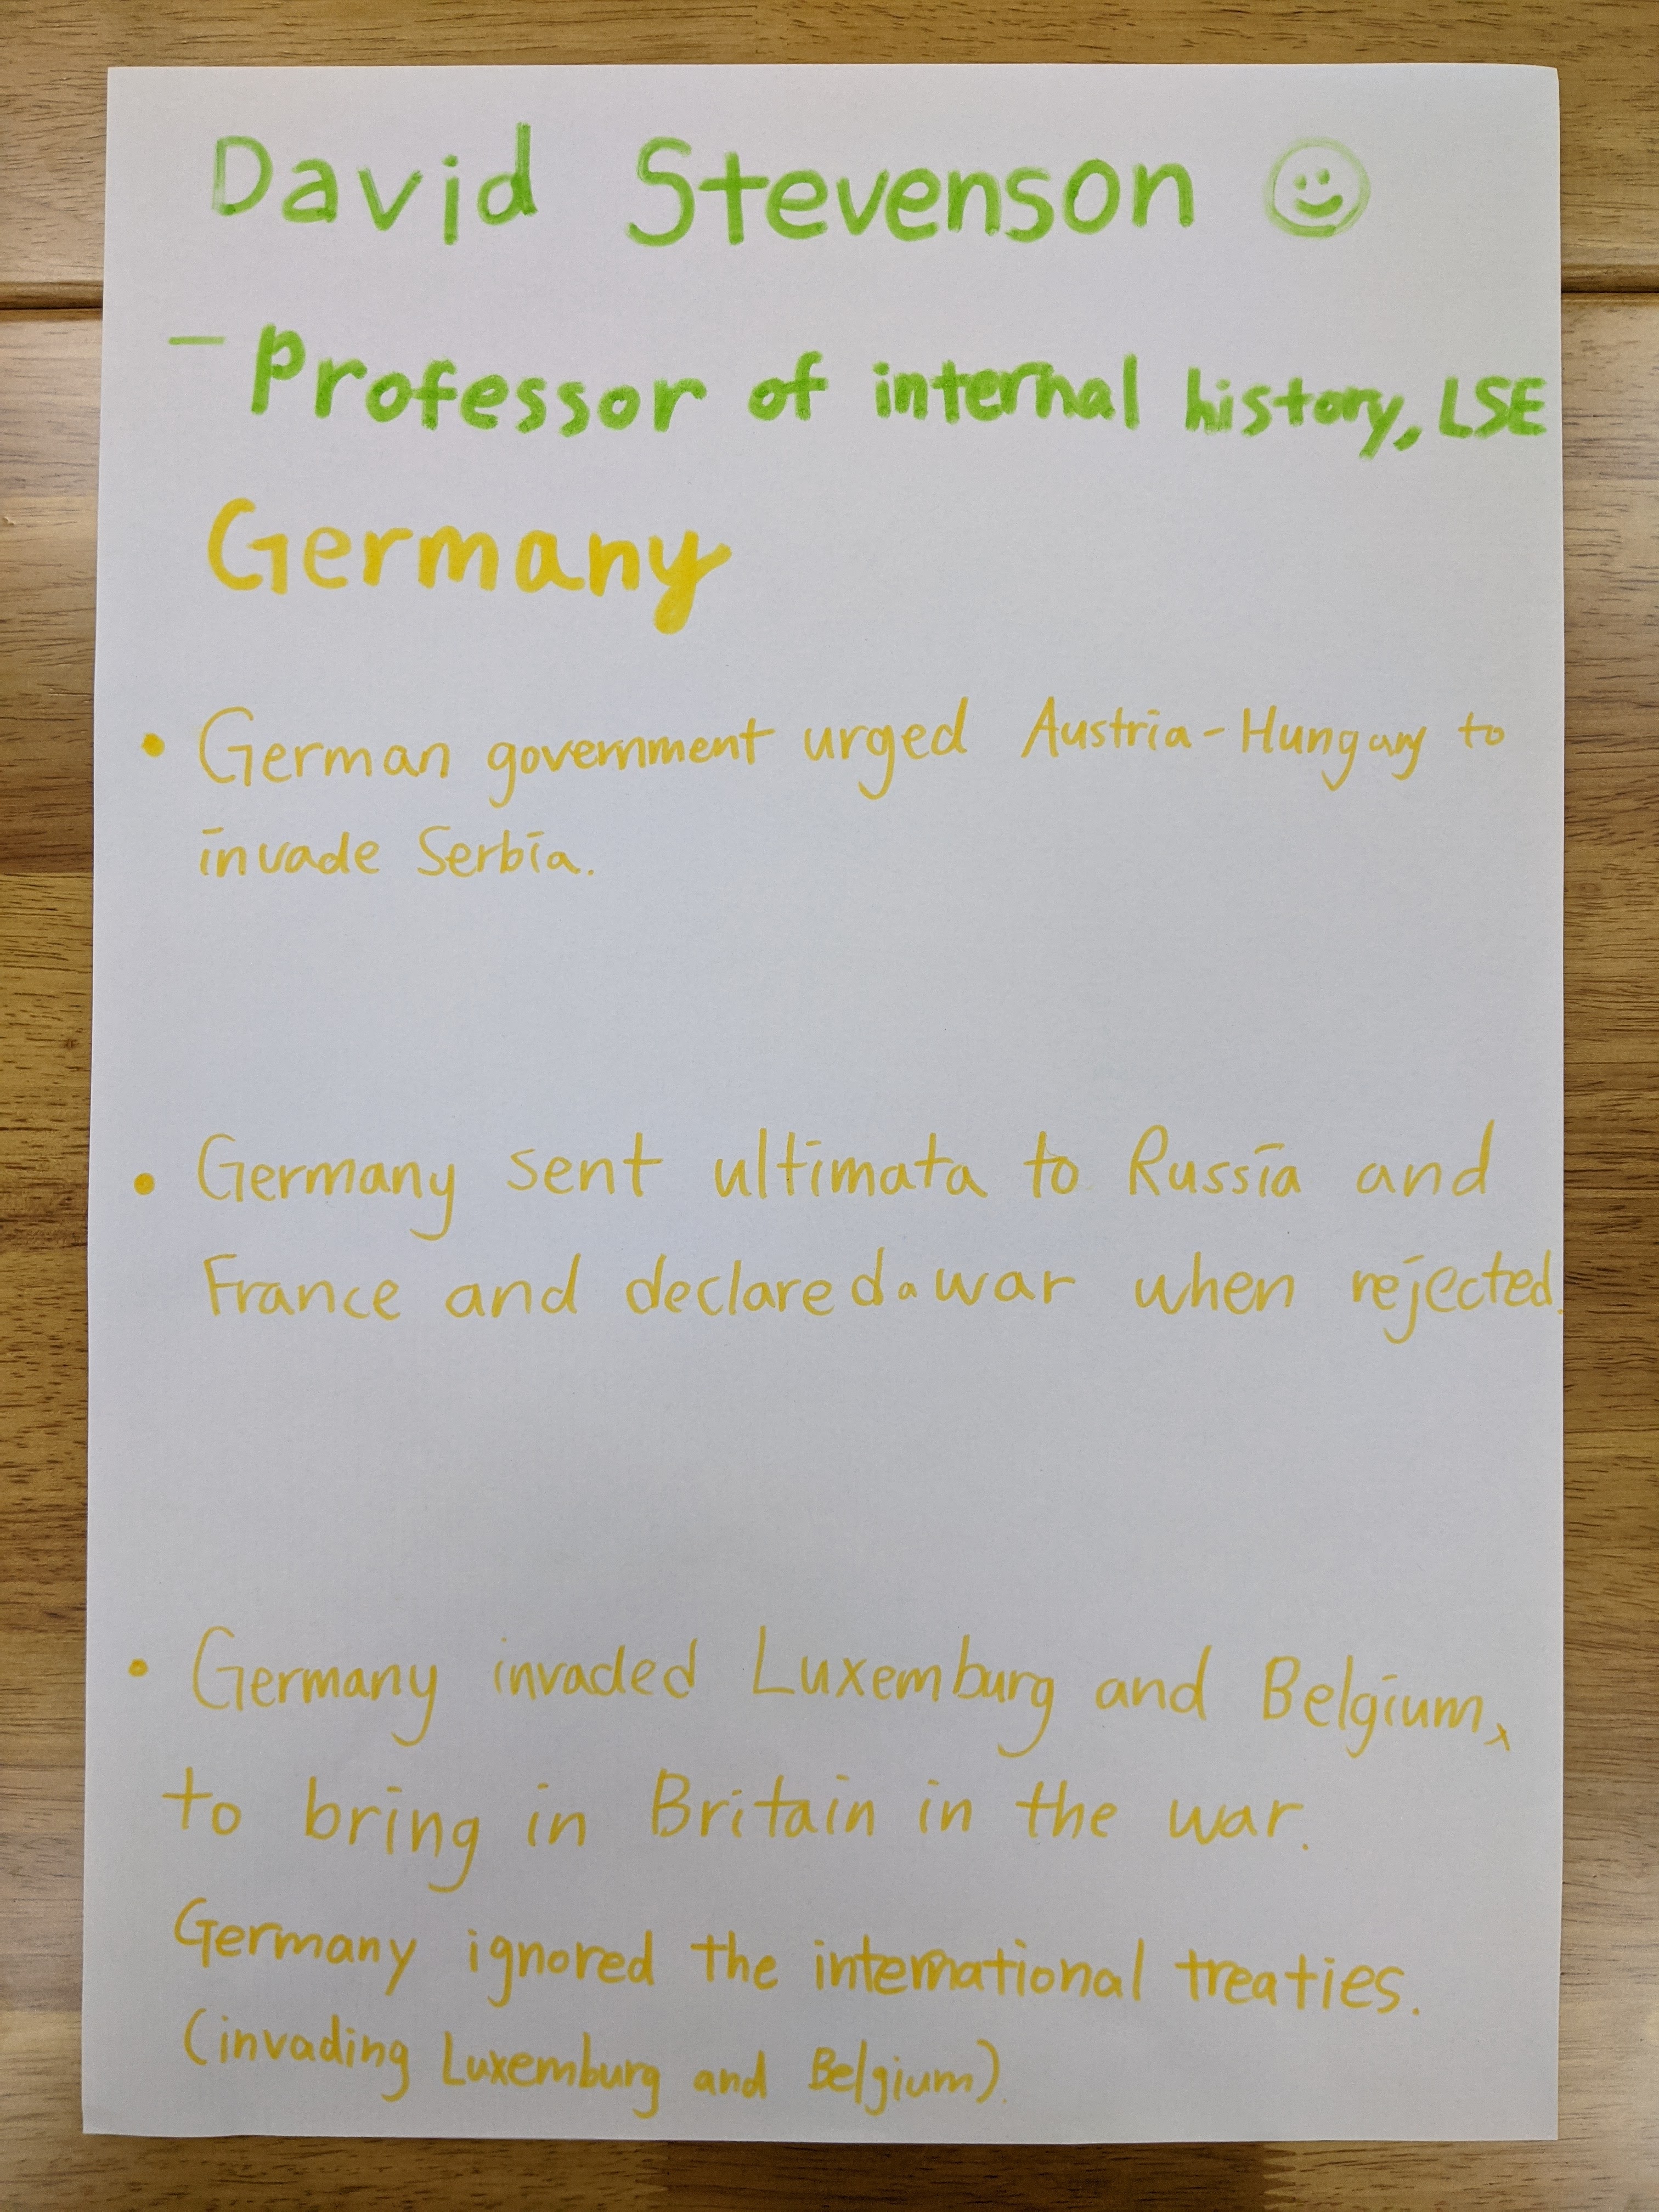 David Stevenson
- Professor of internal history, LSE
Germany
• German government urged Austria-Hungary to
invade Serbia.
• Germany sent ultimata to Russia and
France and declared war when rejected.
• Germany invaded Luxemburg and Belgium,
to bring in Britain in the war.
Germany ignored the international treaties.
(invading Luxemburg and Belgium).